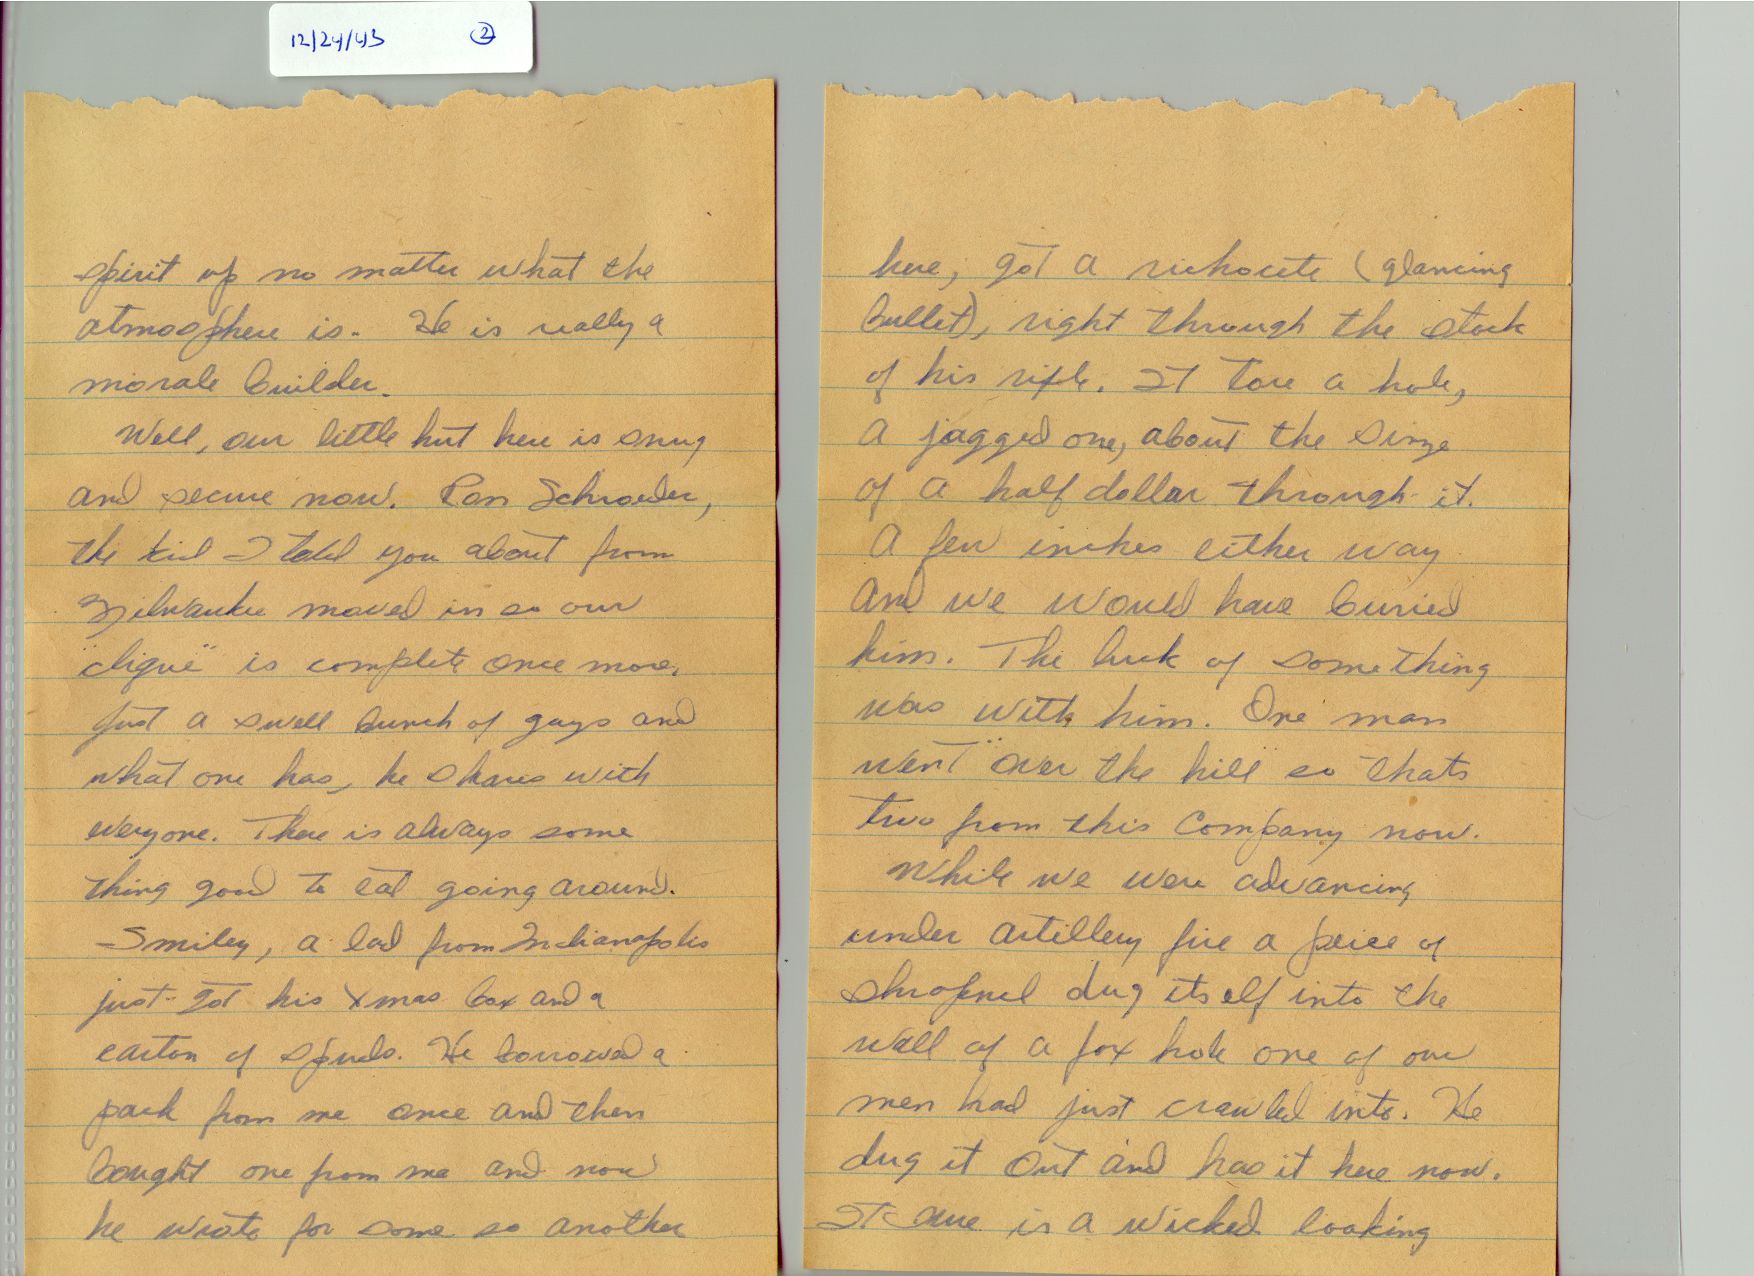 12/24/43 ②
spirit up no matter what the
atmosphere is. He is really a
morale builder.
Well, our little hut here is snug
and secure now. Ron Schroeder,
the kid I told you about from
Milwaukee moved in so our
"clique" is complete once more.
Just a swell bunch of guys and
what one has, he shares with
everyone. There is always some
thing good to eat going around.
Smiley, a lad from Indianapolis
just got his Xmas box and a
carton of spuds. He borrowed a
pack from me once and then
bought one from me and now
he wrote for some so another
here, got a richocete (glancing
bullet), right through the stock
of his rifle. It tore a hole,
a jagged one, about the sinze
of a half dollar through it.
A few inches either way
and we would have buried
him. The luck of something
was with him. One man
went "over the hill" so thats
two from this company now.
While we were advancing
under artillery fire a peice of
shrapnel dug itself into the
wall of a fox hole one of our
men had just crawled into. He
dug it out and has it here now.
It sure is a wicked looking